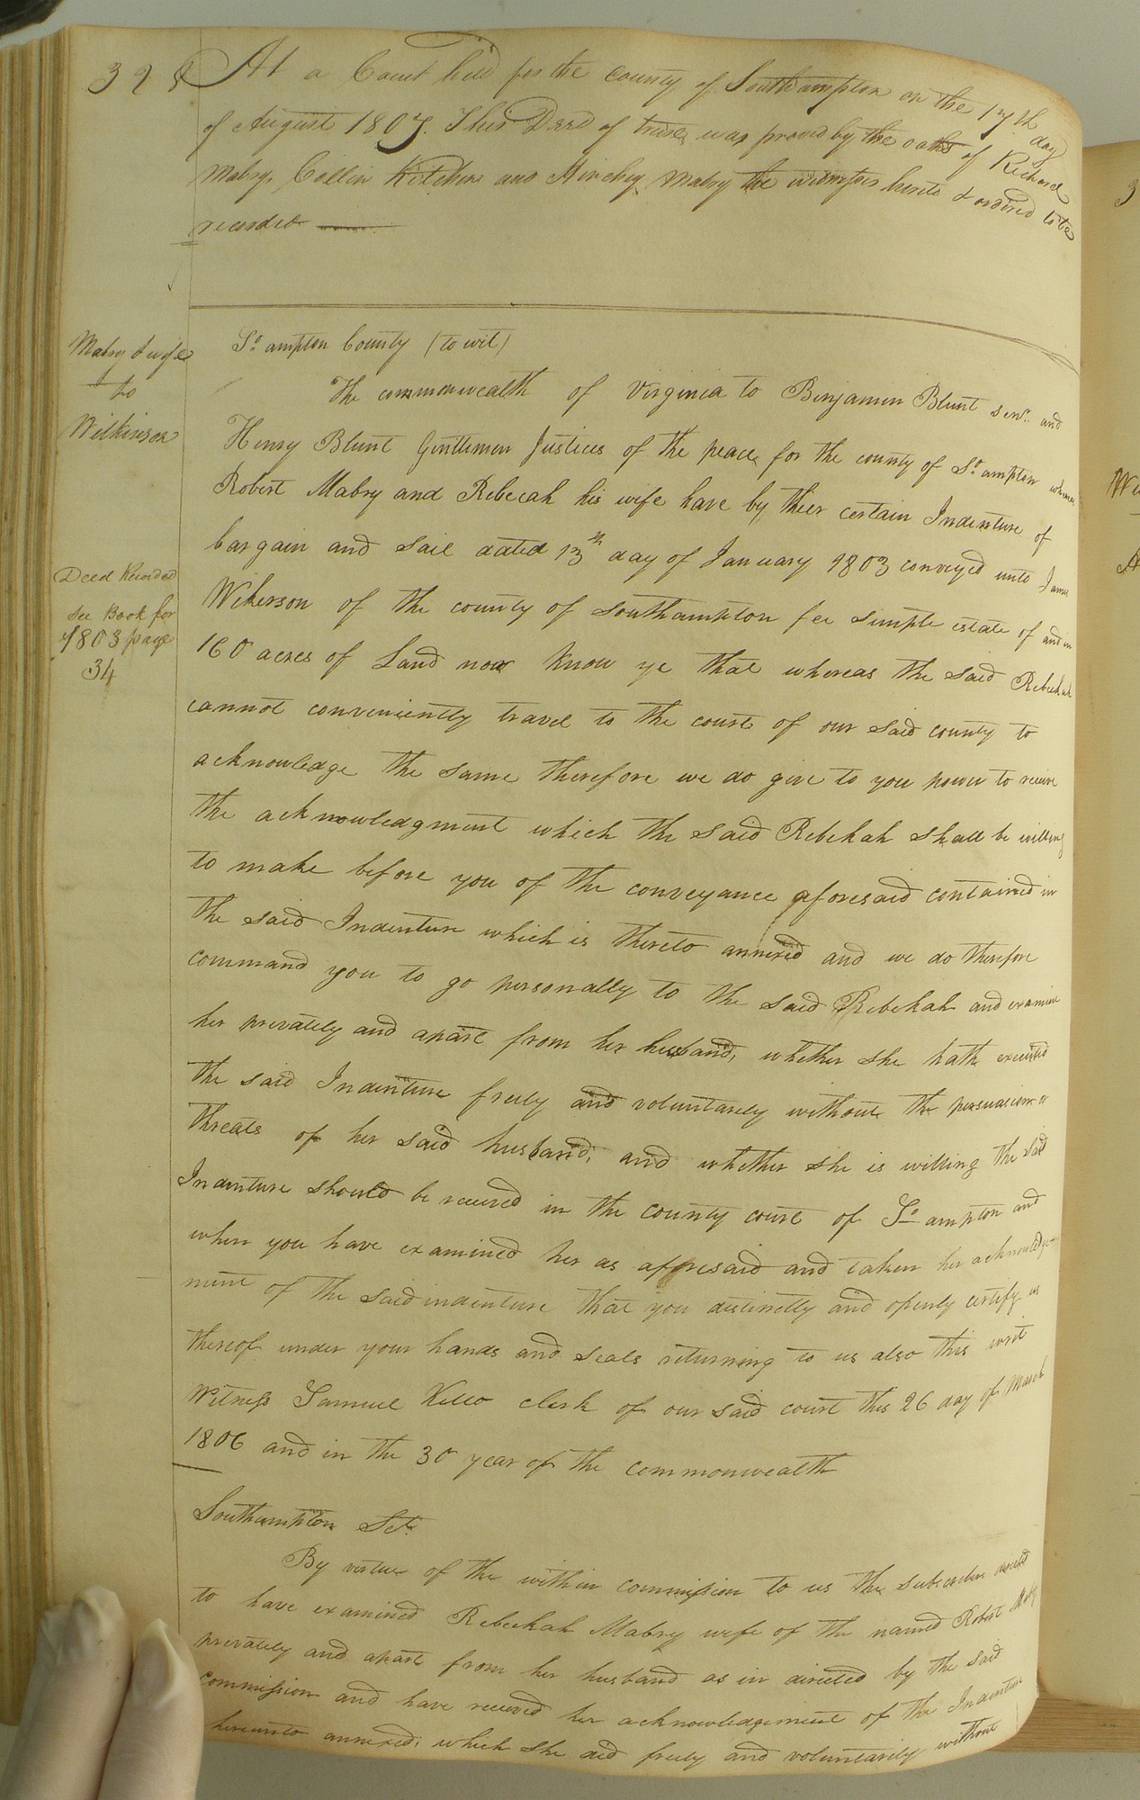 328
At a Court held for the County of Southampton on the 17th day
of August 1807. This Deed of trust was proved by the oaths of Richard
Mabry, Collin Kitchen and Hinchey Mabry the witnesses hereto & ordered to be
recorded
Mabry & wife
to
Wilkinson
So. ampton County (to wit)
The commonwealth of Virginia to Benjamin Blunt senr. and
Henry Blunt Gentlemen Justices of the peace for the county of So. ampton whereas
Robert Mabry and Rebecah his wife have by their certain Indenture of
bargain and sail dated 13th day of January 1803 conveyed unto James
Wikerson of the county of Southampton fee simple estate of and in
160 acres of Land now know ye that whereas the said Rebekah
Deed Recorded
See Book for
1803 page
34
cannot conveniently travel to the court of our said county to
acknowledge the same therefore we do give to you power to receive
the acknowledgment which the said Rebekah shall be willing
to make before you of the conveyance aforesaid contained in
the said Indenture which is thereto annexed and we do therefore
command you to go personally to the said Rebekah and examine
her privately and apart from her husband, whether she hath executed
the said Indenture freely and voluntarely without the persuasions or
threats of her said husband, and whether she is willing the said
Indenture should be received in the county court of So ampton and
when you have examined her as afforesaid and taken her acknowledge-
ment of the said indenture that you distinctly and openly certify us
thereof under your hands and seals returning to us also this writ
Witness Samuel Kello clerk of our said court this 26 day of March
1806 and in the 30 year of the commonwealth
Southampton Sct.
By virtue of the within commission to us the subscribers
to have examined Rebeckah Mabry wife of the named Robert Mabry
privately and apart from her husband as in directed by the said
Commission and have received her acknowledgement of the Indenture
hereunto annexed, which she did freely and voluntarily without